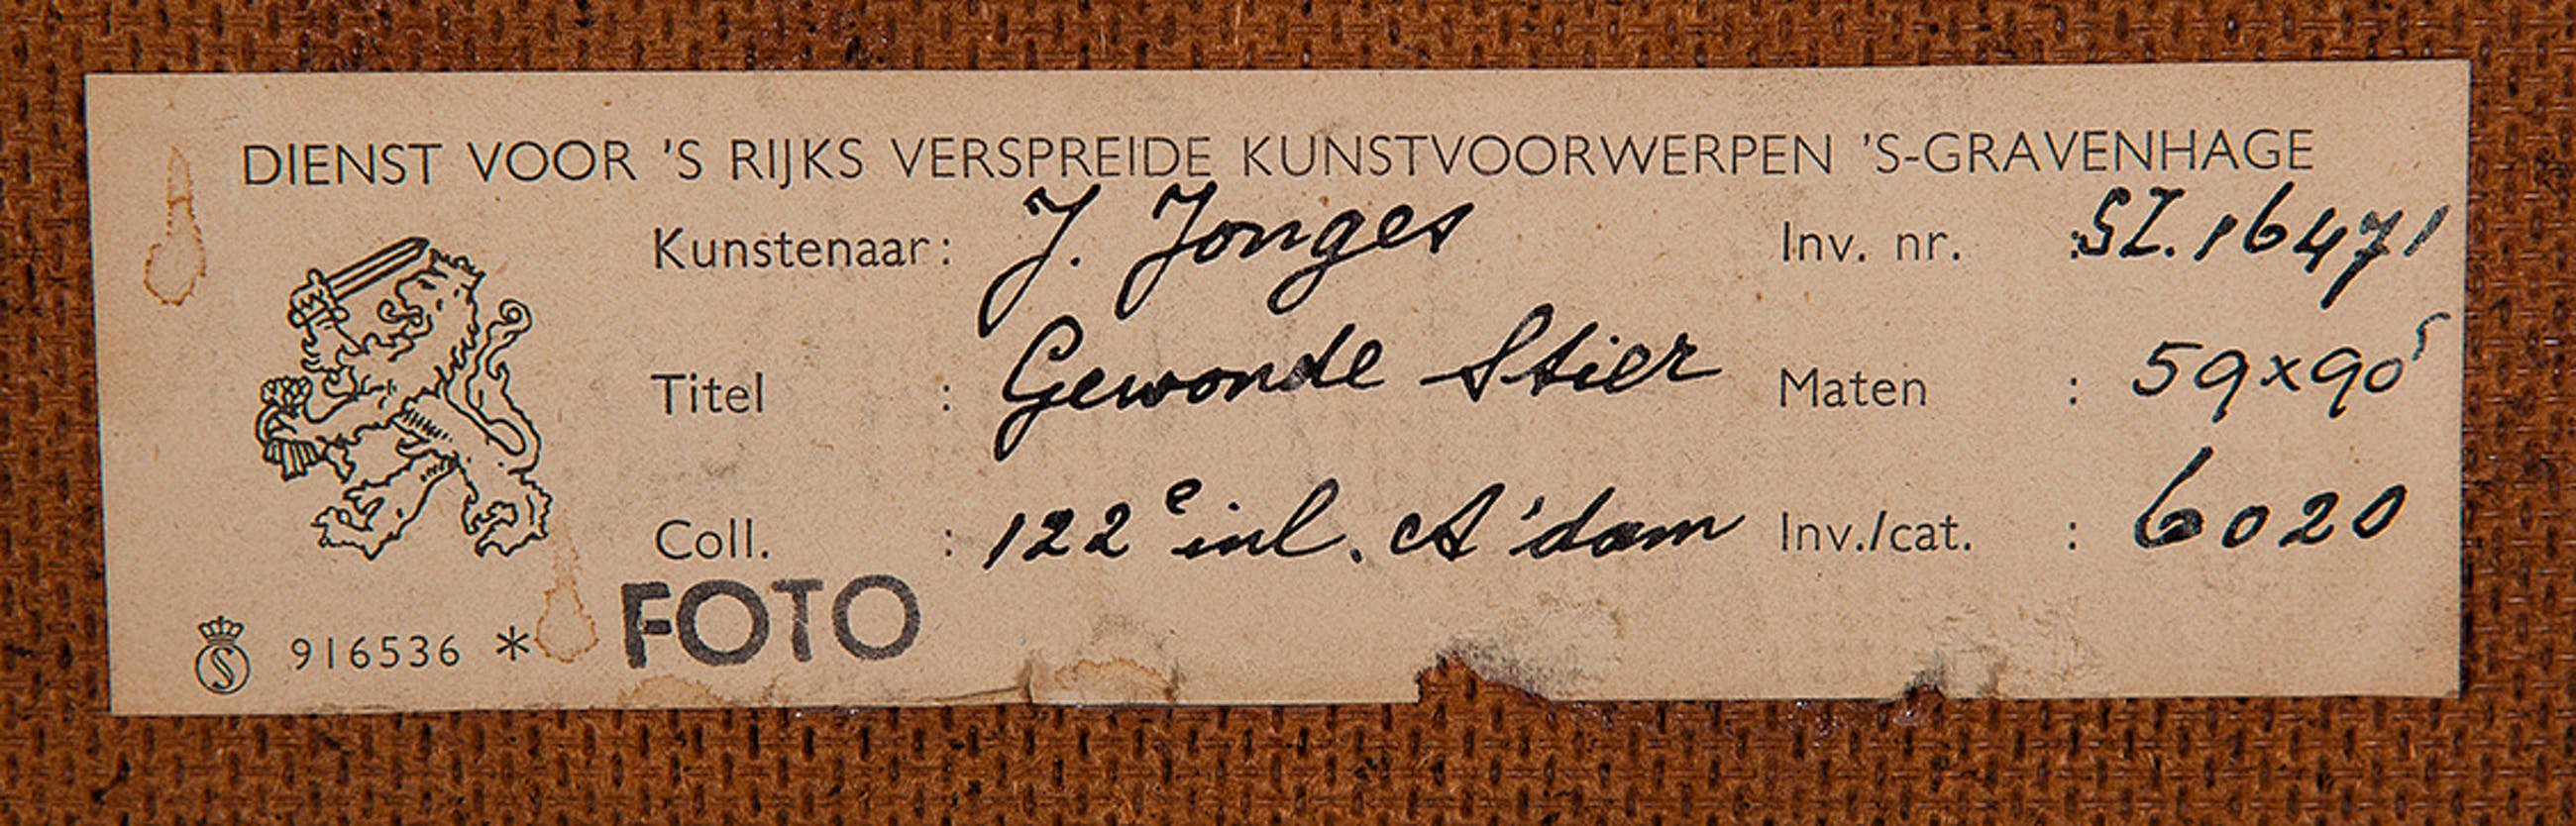 DIENST VOOR 'S RIJKS VERSPREIDE KUNSTVOORWERPEN 'S-GRAVENHAGE
Kunstenaar: J. Jonges Inv. nr. : SZ. 16471
Titel : Gewonde Stier Maten : 59x90⁵
Coll. : 122e inl. A'dam Inv./cat. : 6020
FOTO
S 916536 *